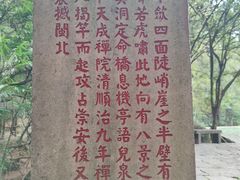 斂四面陡峭崖之半壁有
若虎嘯此地向有八景之
與洞定命橋息機亭語兒泉
天成禪院清順治九年禪
揭竿而起攻占崇安後又
震撼閩北